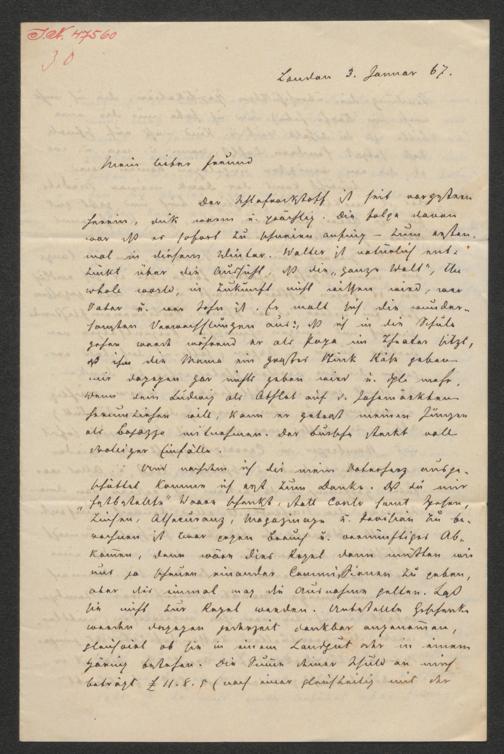 I.N. 47560
30
London 3. Januar 67.
Mein lieber Freund
Der Schlafrockstoff ist seit vorgestern
herein, dick warm u. prächtig. Die Folge davon
war daß es sofort zu schneien anfing – zum ersten
mal in diesem Winter. Walter ist natürlich ent-
zückt über die Aussicht, daß die „ganze Welt", the
whole world, in Zukunft nicht wissen wird, wer
Vater u. wer Sohn ist. Er malt sich die wunder-
samsten Verwechslungen aus: daß ich in die Schule
gehen werde während er als Papa im Theater sitzt,
daß ihm die Mama ein großes Stück Käse geben
mir dagegen gar nichts geben wird u. dgl. mehr.
Wenn dein Ludwig als Athlet auf d. Jahrmärkten
herumziehen will, kann er getrost meinen Jungen
als Bajazzo mitnehmen. Der Bursche steckt voll
drolliger Einfälle.
Und nachdem ich dir mein Vaterherz ausge-
schüttet komme ich erst zum Danke. Daß du mir
"festbestellte" Waare schenkst, statt Conto samt Spesen,
Zinsen, Assecuranz, Magazinage u. Provision zu be-
rechnen ist zwar gegen Brauch u. vernünftiges Ab-
kommen, denn wäre dies Regel dann müßten wir
uns ja scheuen einander Commissionen zu geben,
aber dies einmal mag die Ausnahme gelten. Laß
sie nicht zur Regel werden. Unbestellte Geschenke
werden dagegen jederzeit dankbar angenommen,
gleichviel ob sie in einem Landgut oder in einem
Häring bestehen. Die Summe deiner Schuld an mich
beträgt £ 11.8.5 (nach einer gleichzeitig mit der